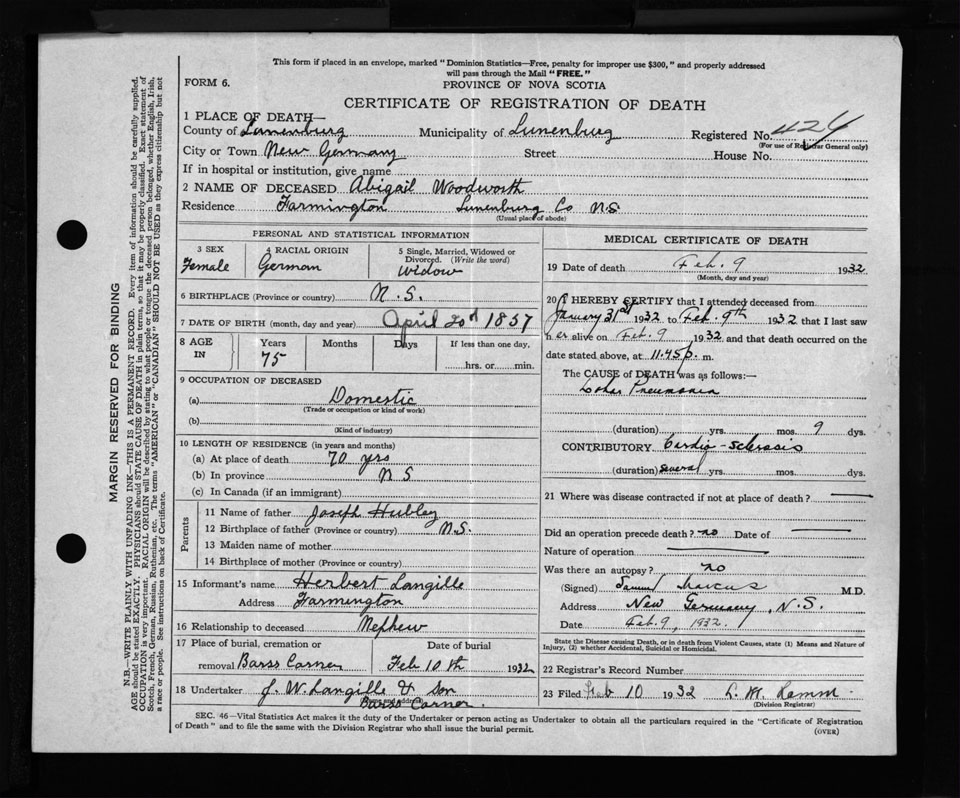 This form if placed in an envelope, marked "Dominion Statistics—Free, penalty for improper use $300," and properly addressed
will pass through the Mail "FREE."
FORM 6.
PROVINCE OF NOVA SCOTIA
CERTIFICATE OF REGISTRATION OF DEATH
1 PLACE OF DEATH—
County of Lunenburg Municipality of Lunenburg Registered No. 424
(For use of Registrar General only)
City or Town New Germany Street House No.
If in hospital or institution, give name
2 NAME OF DECEASED Abigail Woodworth
Residence Farmington Lunenburg Co N.S
(Usual place of abode)
PERSONAL AND STATISTICAL INFORMATION
3 SEX
Female
4 RACIAL ORIGIN
German
5 Single, Married, Widowed or
Divorced. (Write the word)
widow
6 BIRTHPLACE (Province or country) N.S.
7 DATE OF BIRTH (month, day and year) April 20d 1857
8 AGE
IN
Years
75
Months
Days
If less than one day,
hrs. or min.
9 OCCUPATION OF DECEASED
(a) Domestic
(Trade or occupation or kind of work)
(b)
(Kind of industry)
10 LENGTH OF RESIDENCE (in years and months)
(a) At place of death 70 yrs
(b) In province N S
(c) In Canada (if an immigrant)
Parents
11 Name of father Joseph Hubley
12 Birthplace of father (Province or country) N.S.
13 Maiden name of mother
14 Birthplace of mother (Province or country)
15 Informant's name Herbert Langille
Address Farmington
16 Relationship to deceased Nephew
17 Place of burial, cremation or
removal Barss Corner
Date of burial
Feb 10th 1932
18 Undertaker J. W. Langille & Son
Barss Corner
MEDICAL CERTIFICATE OF DEATH
19 Date of death Feb. 9 1932
(Month, day and year)
20 I HEREBY CERTIFY that I attended deceased from
January 31st 1932 to Feb. 9th 1932 that I last saw
her alive on Feb. 9 1932 and that death occurred on the
date stated above, at 11.45 p. m.
The CAUSE of DEATH was as follows:—
Lobar Pneumonia
(duration) yrs. mos. 9 dys.
CONTRIBUTORY Cardio-sclerosis
(duration) several yrs. mos. dys.
21 Where was disease contracted if not at place of death?
Did an operation precede death? no Date of
Nature of operation
Was there an autopsy? no
(Signed) Samuel Marcus M.D.
Address New Germany, N.S.
Date Feb. 9, 1932.
State the Disease causing Death, or in death from Violent Causes, state (1) Means and Nature of
Injury, (2) whether Accidental, Suicidal or Homicidal.
22 Registrar's Record Number
23 Filed Feb 10 1932
(Division Registrar)
SEC. 46—Vital Statistics Act makes it the duty of the Undertaker or person acting as Undertaker to obtain all the particulars required in the "Certificate of Registration
of Death" and to file the same with the Division Registrar who shall issue the burial permit.
(OVER)
MARGIN RESERVED FOR BINDING
N.B.—WRITE PLAINLY WITH UNFADING INK—THIS IS A PERMANENT RECORD. Every item of information should be carefully supplied.
AGE should be stated EXACTLY. PHYSICIANS should STATE CAUSE OF DEATH in plain terms, so that it may be properly classified. Exact statement of
OCCUPATION is very important. RACIAL ORIGIN will be described by stating to what people or tongue the deceased person belonged, whether English, Irish,
Scotch, French, German, Russian, Ruthenian, etc. The terms "AMERICAN" or "CANADIAN" SHOULD NOT BE USED as they express citizenship but not
a race or people. See instructions on back of Certificate.